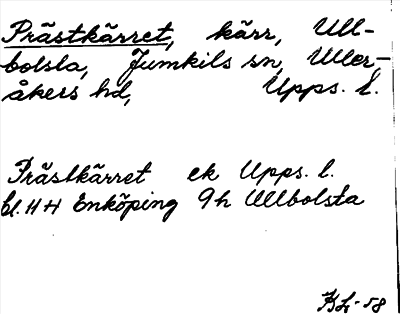 Prästkärret, kärr, Ull-
bolsta, Jumkils sn, Uller-
åkers hd, Upps. l.
Prästkärret ek Upps. l.
bl. 44 Enköping 9h Ullbolsta